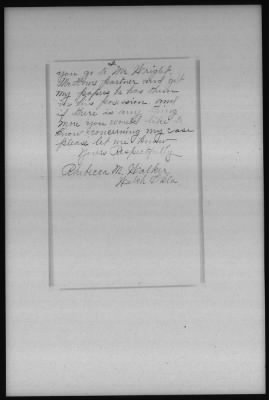 you go to Mr Wright
Mathews partner and git
my papers he has them
in his possion and
if there is any thing
more you would like to
know concerning my case
please let me know
Yours Respectfully
Rebecca M. Walker
Welch Okla